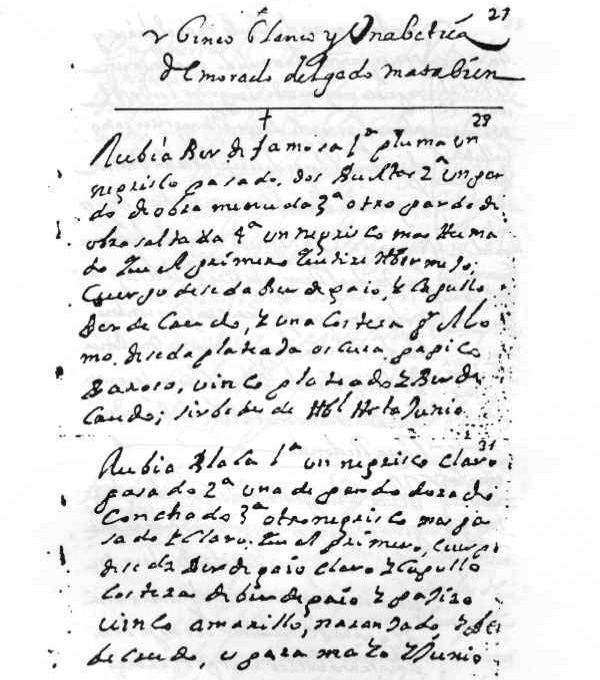 27
Y Binco blanco y Una betica
dEmorado delgado masabien
29
Rubia Berdi famosa 1ª pluma un
negrisco pasado, dos bueltas 2ª un par
do di obra menuda 3ª otro pardo di
obra saltada 4ª un negrisco mas Huma
do
Cuerpo deseda Berdegaio, y Capullo
Berde Caudo, y una Corteza
mo. diseda plateada oscura papico
Baroso, vinco plateado y Berde
Caudo; sirbe des de Abl Hasta Junio
31
Rubia Blaca 1ª un negrisco claro
pasado 2ª una de pardo dorado
Conchado 3ª otro negrisco mas pa
sado y Claro. En el primero, Cuerpo
diseda Berdegaio claro y Capullo
Cortezas di berdegaio y pajizo
vinco amarillo, naranjado y
be Caudo, y para maio y Junio